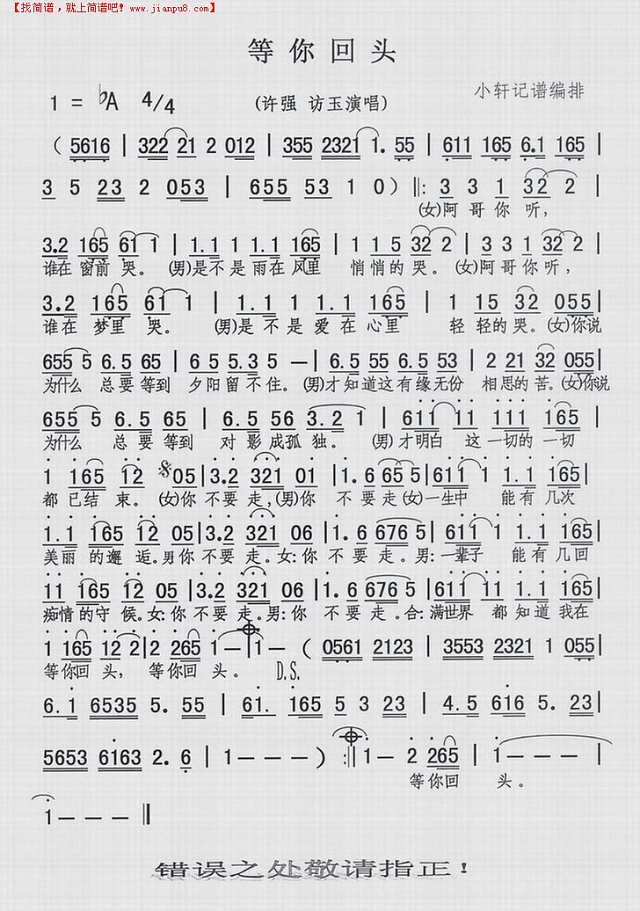 【找简谱，就上简谱吧！www.jianpu8.com】
等你回头
1 = ♭A 4/4 (许强 访玉演唱) 小轩记谱编排
( 5616 | 322 21 2 012 | 355 2321 1. 55 | 611 165 6.1 165 |
3 5 23 2 053 | 655 53 1 0 ) ‖: 3 3 1 32 2 |
(女)阿哥你听，
3.2 165 61 1 | 1.1 1 1 165 | 1 1 5 32 2 | 3 3 1 32 2 |
谁在窗前哭。(男)是不是雨在风里 悄悄的哭。(女)阿哥你听，
3.2 165 61 1 | 1.1 1 1 165 | 1 15 32 055 |
谁在梦里哭。 (男)是不是爱在心里 轻轻的哭。(女)你说
655 5 6.5 65 | 6 5 5.3 5 — | 6.5 55 6.5 53 | 2 21 32 055 |
为什么 总要等到 夕阳留不住。(男)才知道这有缘无份 相思的苦。(女)你说
655 5 6.5 65 | 6.5 56 3.2 1 | 611 11 111 165 |
为什么 总要等到 对影成孤独。 (男)才明白 这一切的一切
1 165 12 05 | 3.2 321 01 | 1.6 655 5 | 611 1 1.1 165 |
都已结束。(女)你不要走，(男)你 不要走(女)一生中 能有几次
1.1 165 12 05 | 3.2 321 06 | 1.6 676 5 | 611 1 1.1 165 |
美丽的邂逅。男你不要走。女:你不要走。男:一辈子 能有几回
11 165 12 05 | 3.2 321 06 | 1.6 676 5 | 611 11 1.1 165 |
痴情的守候。女:你不要走。男:你 不要走。合:满世界 都知道我在
1 165 12 2 | 2 265 1 — | 1 — ( 0561 2123 | 3553 2321 1 055 |
等你回头， 等你回头。 D.S.
6.1 6535 5. 55 | 61. 165 5 3 23 | 4.5 616 5.23 |
5653 6163 2.6 | 1 — — — ) :‖ 1 — 2 265 | 1 — — — |
等你回 头。
1 — — — ‖
错误之处敬请指正！